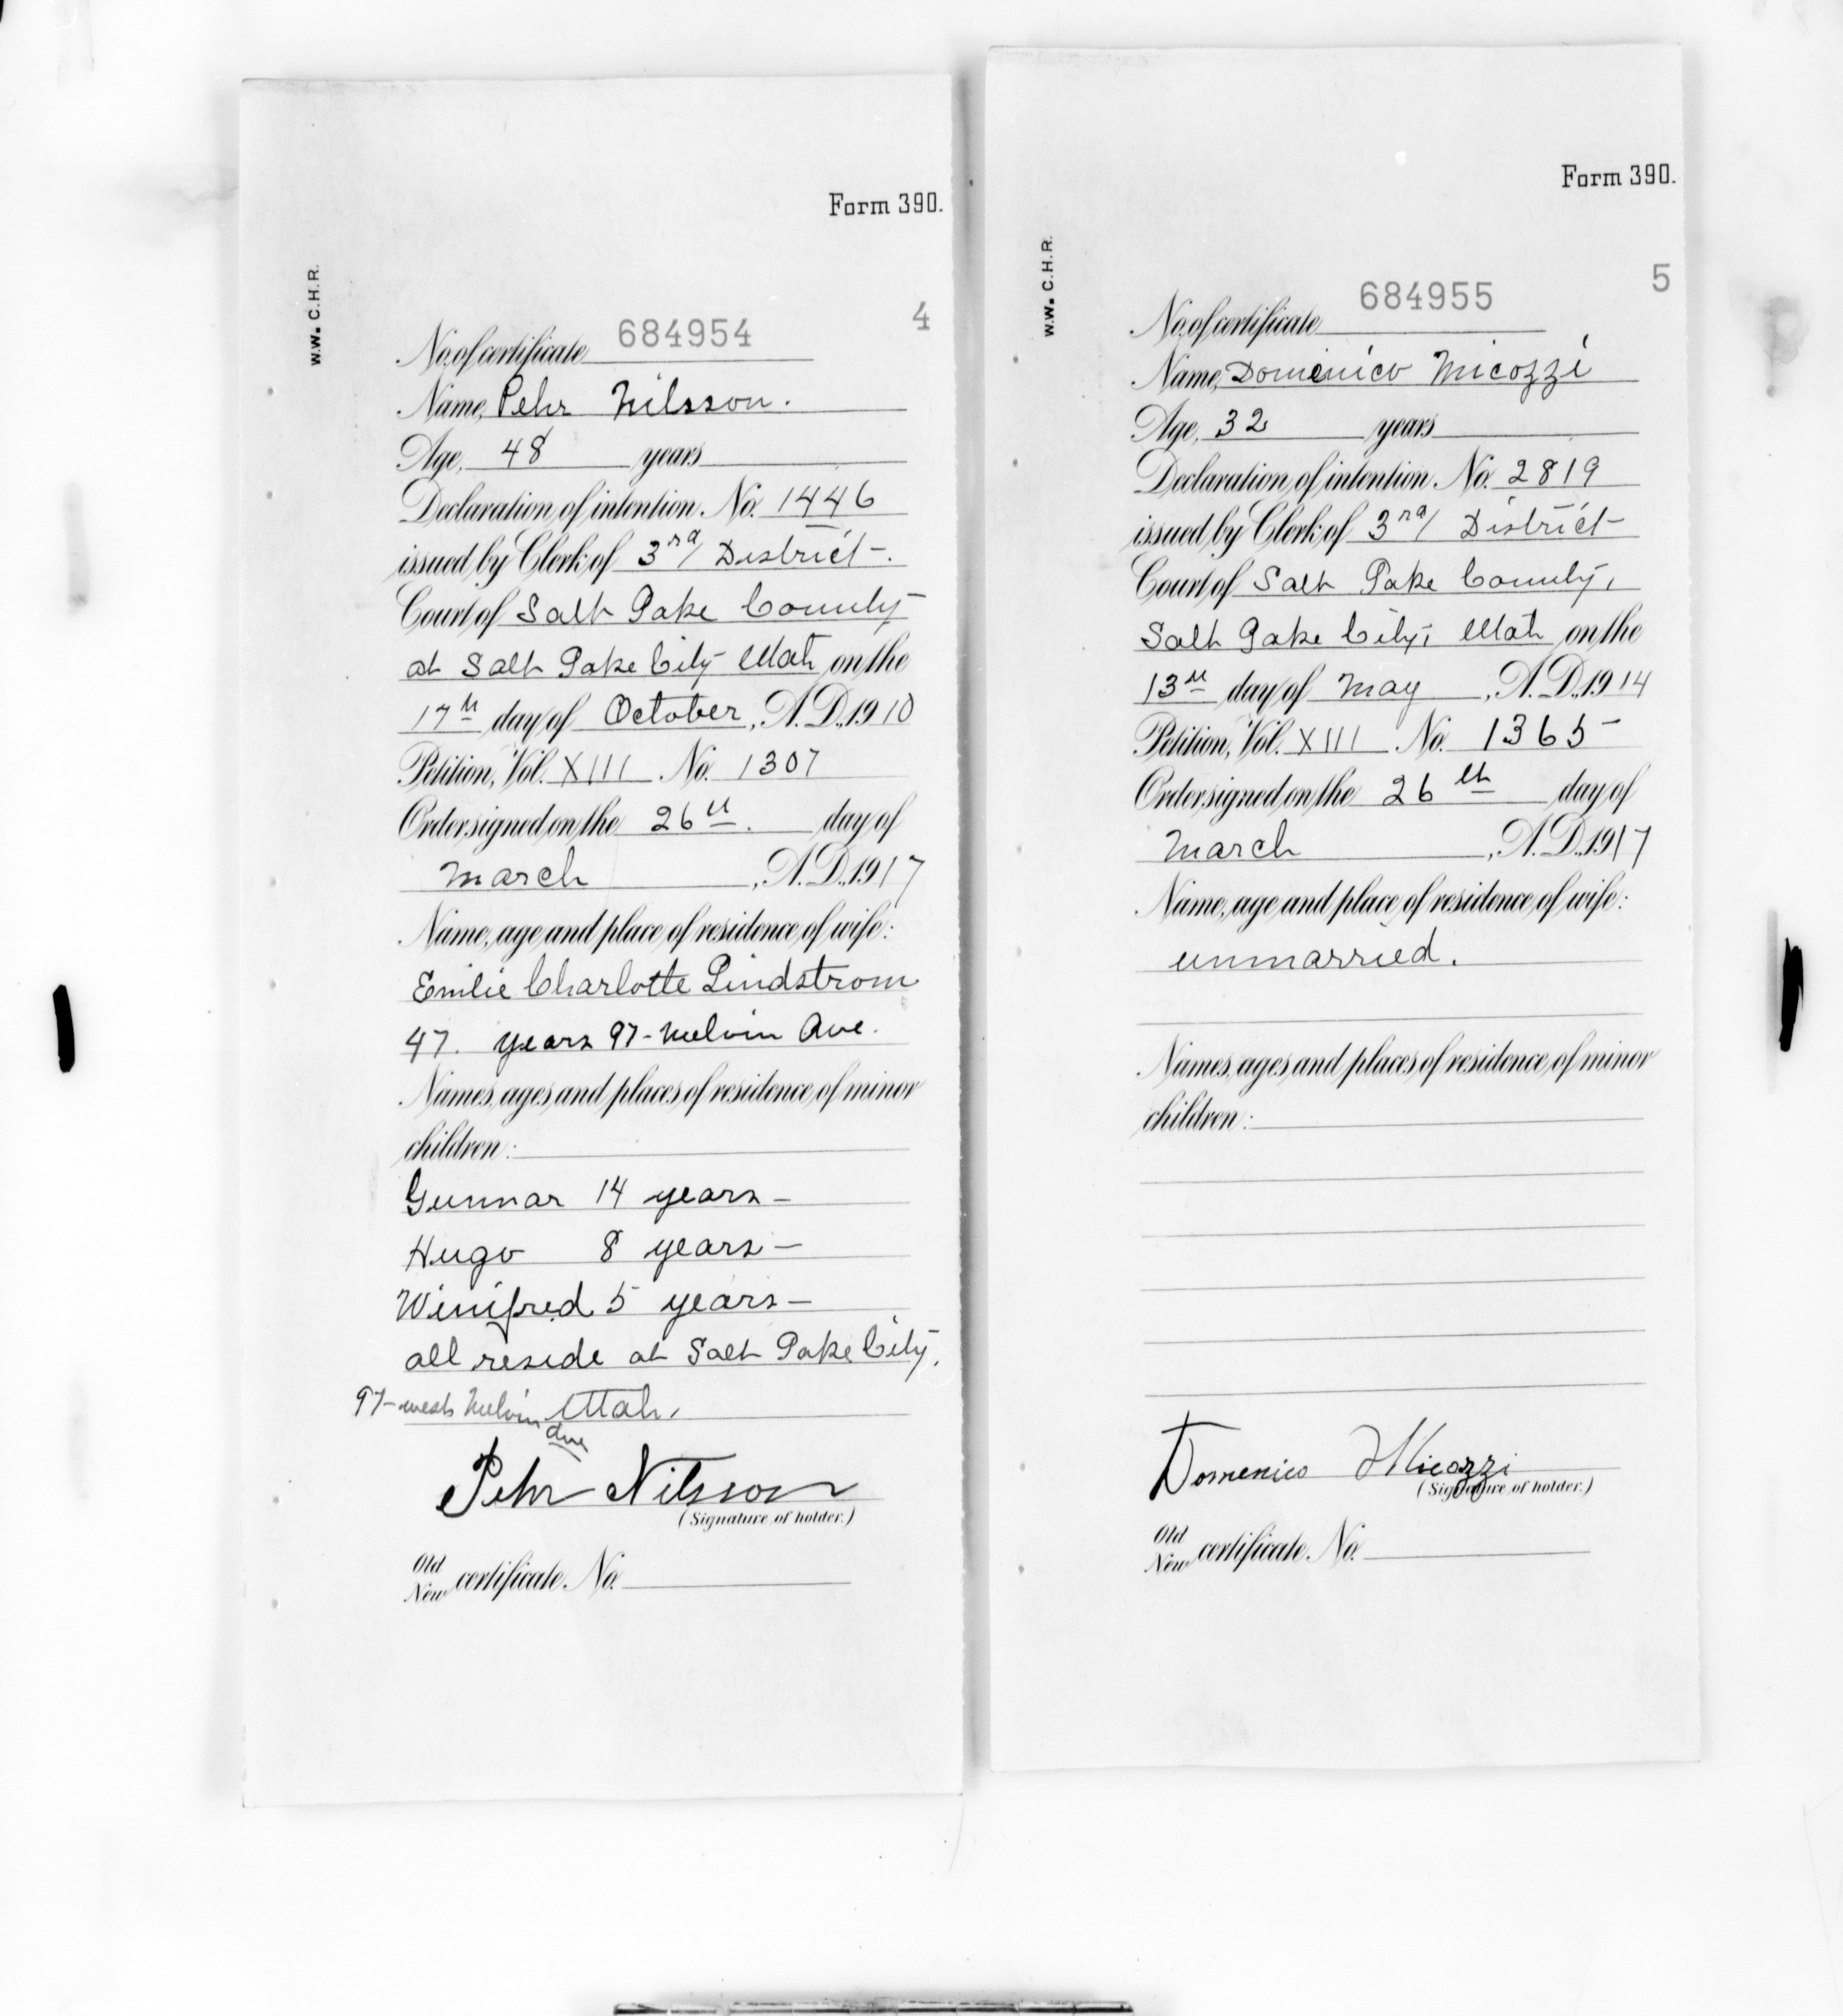 Form 390.
W.W. C.H.R.
4
No. of certificate 684954
Name, Pehr Nilsson.
Age, 48 years
Declaration of intention. No. 1446
issued by Clerk of 3rd District
Court of Salt Lake County
at Salt Lake City Utah on the
17th day of October, A.D., 1910
Petition, Vol. XIII No. 1307
Order signed on the 26th. day of
March, A.D., 1917
Name, age and place of residence of wife:
Emilie Charlotte Lindstrom
47. years 97- Melvin Ave.
Names, ages and places of residence of minor
children:
Gunnar 14 years -
Hugo 8 years -
Winifred 5 years -
all reside at Salt Lake City,
97-west Melvin Utah.
Ave
Pehr Nilsson
(Signature of holder.)
Old
New certificate No.
Form 390.
W.W. C.H.R.
5
No. of certificate 684955
Name, Domenico Micozzi
Age, 32 years
Declaration of intention. No. 2819
issued by Clerk of 3rd District
Court of Salt Lake County,
Salt Lake City, Utah on the
13th day of May, A.D., 1914
Petition, Vol. XIII No. 1365
Order signed on the 26th day of
March, A.D., 1917
Name, age and place of residence of wife:
unmarried.
Names, ages and places of residence of minor
children:
Domenico Micozzi
(Signature of holder.)
Old
New certificate No.